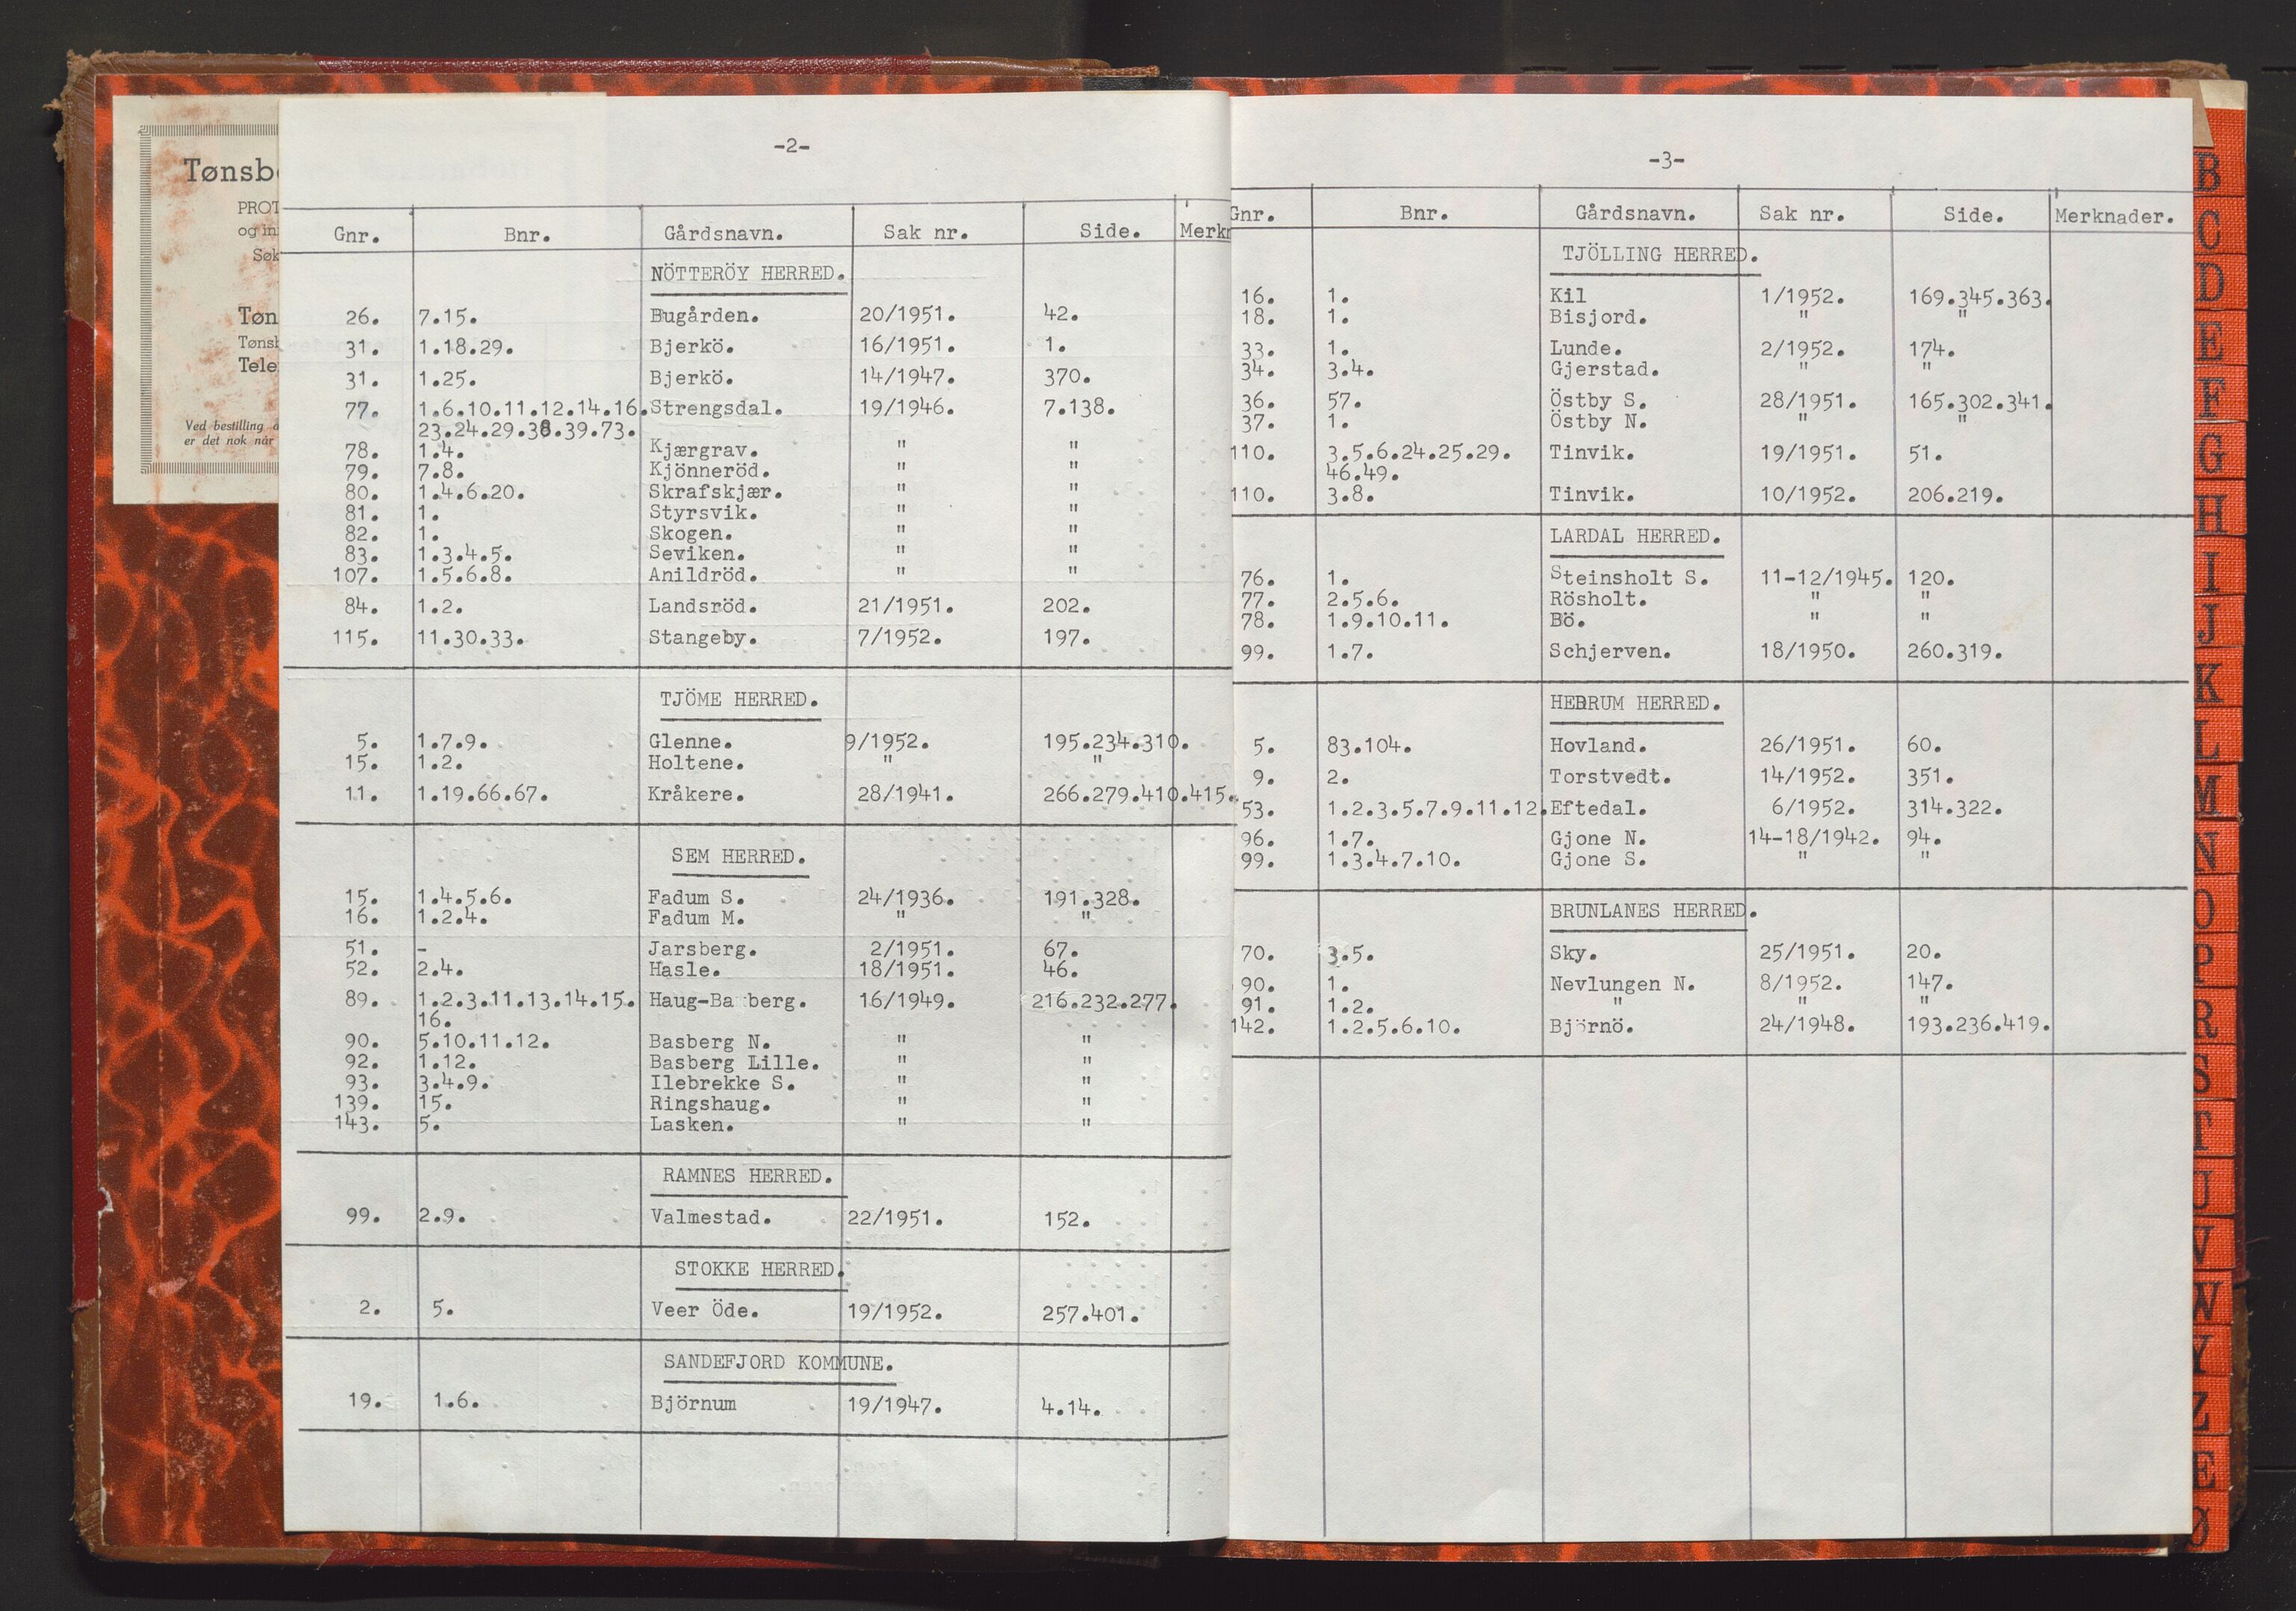 Tønsb
PROT
og in
Søk
Tøn
Tønsb
Tele
Ved bestilling
er det nok når
-2-
Gnr. Bnr. Gårdsnavn. Sak nr. Side. Merkn
NÖTTERÖY HERRED.
26. 7.15. Bugården. 20/1951. 42.
31. 1.18.29. Bjerkö. 16/1951. 1.
31. 1.25. Bjerkö. 14/1947. 370.
77. 1.6.10.11.12.14.16. Strengsdal. 19/1946. 7.138.
23.24.29.38.39.73.
78. 1.4. Kjærgrav. " "
79. 7.8. Kjönneröd. " "
80. 1.4.6.20. Skrafskjær. " "
81. 1. Styrsvik. " "
82. 1. Skogen. " "
83. 1.3.4.5. Seviken. " "
107. 1.5.6.8. Anildröd. " "
84. 1.2. Landsröd. 21/1951. 202.
115. 11.30.33. Stangeby. 7/1952. 197.
TJÖME HERRED.
5. 1.7.9. Glenne. 9/1952. 195.234.310.
15. 1.2. Holtene. " "
11. 1.19.66.67. Kråkere. 28/1941. 266.279.410.415.
SEM HERRED.
15. 1.4.5.6. Fadum S. 24/1936. 191.328.
16. 1.2.4. Fadum M. " "
51. - Jarsberg. 2/1951. 67.
52. 2.4. Hasle. 18/1951. 46.
89. 1.2.3.11.13.14.15. Haug-Ba berg. 16/1949. 216.232.277.
16.
90. 5.10.11.12. Basberg N. " "
92. 1.12. Basberg Lille. " "
93. 3.4.9. Ilebrekke S. " "
139. 15. Ringshaug. " "
143. 5. Lasken. " "
RAMNES HERRED.
99. 2.9. Valmestad. 22/1951. 152.
STOKKE HERRED.
2. 5. Veer Öde. 19/1952. 257.401.
SANDEFJORD KOMMUNE.
19. 1.6. Björnum 19/1947. 4.14.
-3-
Gnr. Bnr. Gårdsnavn. Sak nr. Side. Merknader.
TJÖLLING HERRED.
16. 1. Kil 1/1952. 169.345.363.
18. 1. Bisjord. " "
33. 1. Lunde. 2/1952. 174.
34. 3.4. Gjerstad. " "
36. 57. Östby S. 28/1951. 165.302.341.
37. 1. Östby N. " "
110. 3.5.6.24.25.29. Tinvik. 19/1951. 51.
46.49.
110. 3.8. Tinvik. 10/1952. 206.219.
LARDAL HERRED.
76. 1. Steinsholt S. 11-12/1945. 120.
77. 2.5.6. Rösholt. " "
78. 1.9.10.11. Bö. " "
99. 1.7. Schjerven. 18/1950. 260.319.
HEDRUM HERRED.
5. 83.104. Hovland. 26/1951. 60.
9. 2. Torstvedt. 14/1952. 351.
53. 1.2.3.5.7.9.11.12. Eftedal. 6/1952. 314.322.
96. 1.7. Gjone N. 14-18/1942. 94.
99. 1.3.4.7.10. Gjone S. " "
BRUNLANES HERRED.
70. 3.5. Sky. 25/1951. 20.
90. 1. Nevlungen N. 8/1952. 147.
91. 1.2. " " "
142. 1.2.5.6.10. Björnö. 24/1948. 193.236.419.
B
C
D
E
F
G
H
I
J
K
L
M
N
O
P
R
S
T
U
V
W
Y
Z
Æ
Ø